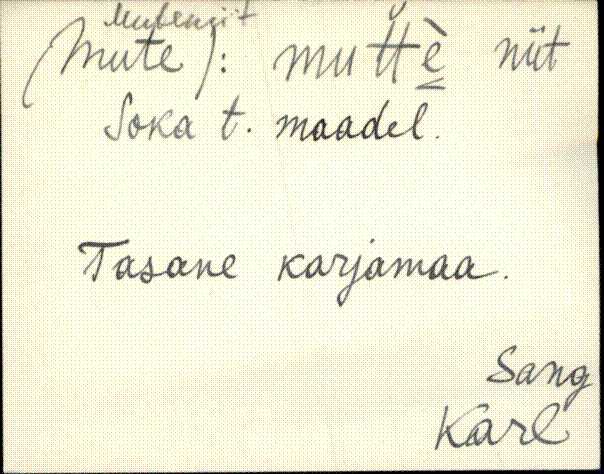 Muteniit
(Mute): mut̆t̆è niit
Soka t. maadel.
Tasane karjamaa.
Sang
Karl